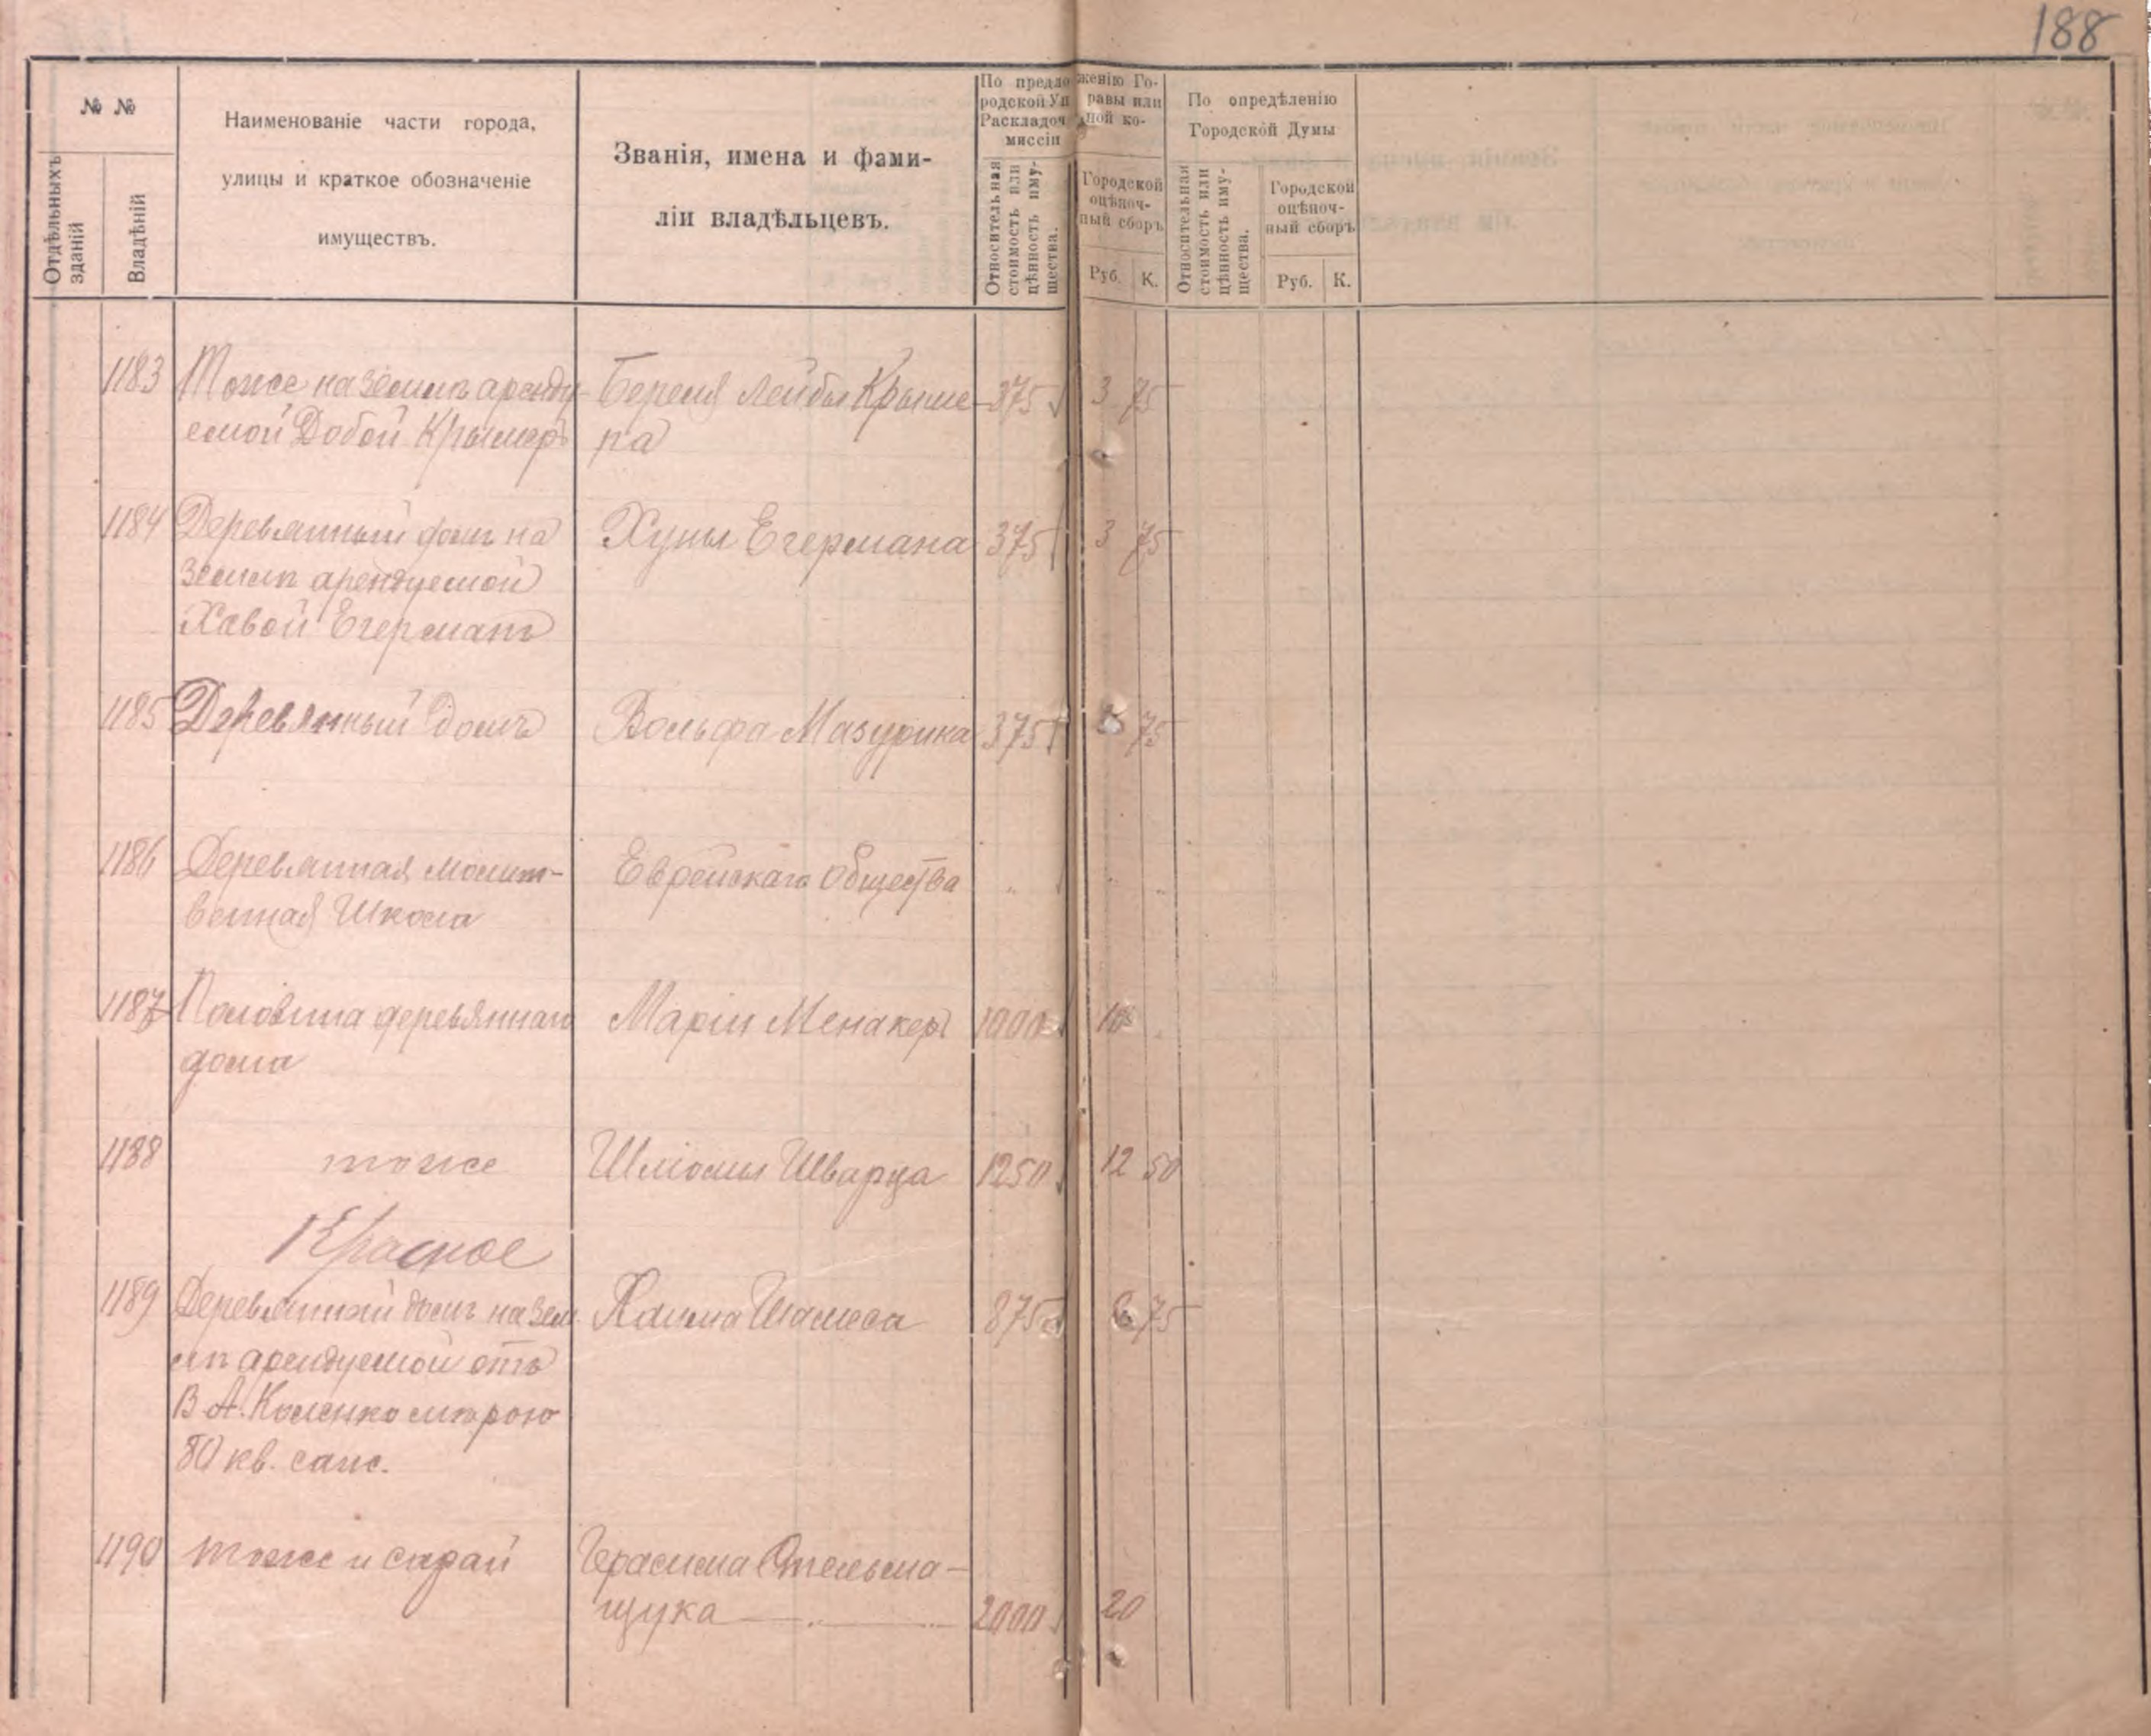 188
№ №
Отдѣльныхъ зданій
Владѣній
Наименованіе части города,
улицы и краткое обозначеніе
имуществъ.
Званія, имена и фами-
ліи владѣльцевъ.
По предло женію Го-
родской Уп равы или
Расклад оч ной ко-
миссіи
Относительная
стоимость или
цѣнность иму-
щества.
Городской
оцѣноч-
ный сборъ
Руб. К.
По опредѣленію
Городской Думы
Относительная
стоимость или
цѣнность иму-
щества.
Городской
оцѣноч-
ный сборъ
Руб. К.
1183 Тоже на землѣ аренду Береля Лейбы Крыме- 375 3 75
емой Добой Крымеръ ра
1184 Деревянный домъ на Хуны Егермана 375 3 75
землѣ арендуемой
Хавой Егерманъ
1185 Деревянный домъ Вольфа Мазурика 375 3 75
1186 Деревянная молит- Еврейскаго Общества " " "
венная Школа
1187 Половина деревяннаго Маріи Менакеръ 1000 10
дома
1188 тоже Шліомы Шварца 1250 12 50
Красное
1189 Деревянный домъ на зем Хаима Шамеса 875 8 75
лѣ арендуемой отъ
В А. Коленко мѣрою
80 кв. саж.
1190 тоже и сарай Герасима Стельма-
щука 2000 20